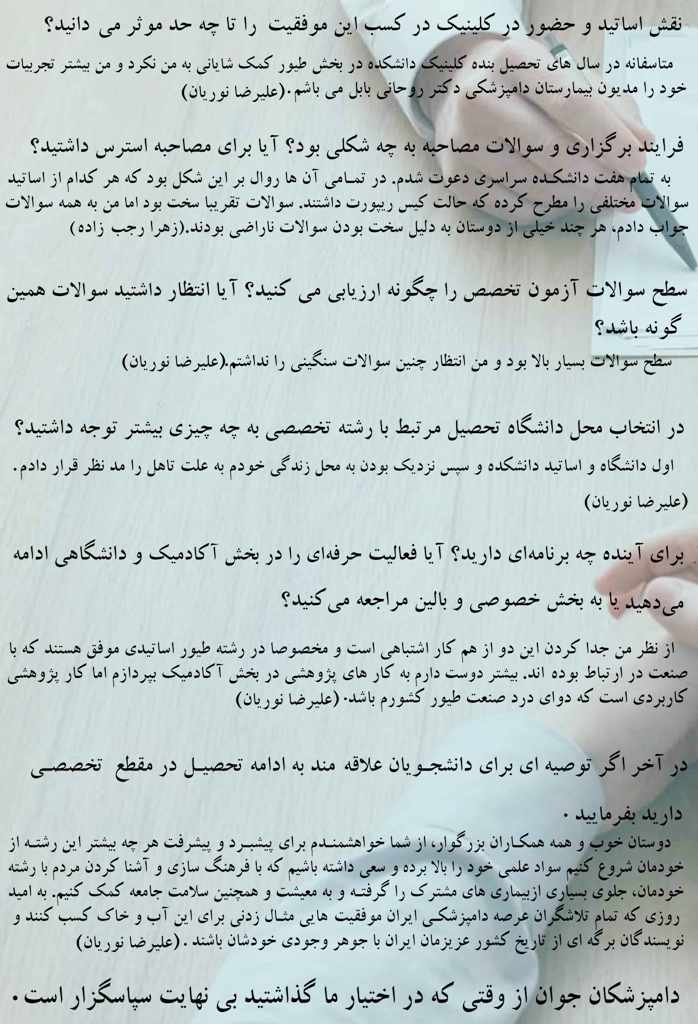 نقش اساتید و حضور در کلینیک در کسب این موفقیت را تا چه حد موثر می دانید؟
متاسفانه در سال های تحصیل بنده کلینیک دانشکده در بخش طیور کمک شایانی به من نکرد و من بیشتر تجربیات
خود را مدیون بیمارستان دامپزشکی دکتر روحانی بابل می باشم.(علیرضا نوریان)
فرایند برگزاری و سوالات مصاحبه به چه شکلی بود؟ آیا برای مصاحبه استرس داشتید؟
به تمام هفت دانشکده سراسری دعوت شدم. در تمامی آن ها روال بر این شکل بود که هر کدام از اساتید
سوالات مختلفی را مطرح کرده که حالت کیس ریپورت داشتند. سوالات تقریبا سخت بود اما من به همه سوالات
جواب دادم، هر چند خیلی از دوستان به دلیل سخت بودن سوالات ناراضی بودند.(زهرا رجب زاده)
سطح سوالات آزمون تخصص را چگونه ارزیابی می کنید؟ آیا انتظار داشتید سوالات همین
گونه باشد؟
سطح سوالات بسیار بالا بود و من انتظار چنین سوالات سنگینی را نداشتم.(علیرضا نوریان)
در انتخاب محل دانشگاه تحصیل مرتبط با رشته تخصصی به چه چیزی بیشتر توجه داشتید؟
اول دانشگاه و اساتید دانشکده و سپس نزدیک بودن به محل زندگی خودم به علت تاهل را مد نظر قرار دادم.
(علیرضا نوریان)
برای آینده چه برنامه‌ای دارید؟ آیا فعالیت حرفه‌ای را در بخش آکادمیک و دانشگاهی ادامه
می‌دهید یا به بخش خصوصی و بالین مراجعه می‌کنید؟
از نظر من جدا کردن این دو از هم کار اشتباهی است و مخصوصا در رشته طیور اساتیدی موفق هستند که با
صنعت در ارتباط بوده اند. بیشتر دوست دارم به کار های پژوهشی در بخش آکادمیک بپردازم اما کار پژوهشی
کاربردی است که دوای درد صنعت طیور کشورم باشد.(علیرضا نوریان)
در آخر اگر توصیه ای برای دانشجویان علاقه مند به ادامه تحصیل در مقطع تخصصی
دارید بفرمایید .
دوستان خوب و همه همکاران بزرگوار، از شما خواهشمندم برای پیشبرد و پیشرفت هر چه بیشتر این رشته از
خودمان شروع کنیم سواد علمی خود را بالا برده و سعی داشته باشیم که با فرهنگ سازی و آشنا کردن مردم با رشته
خودمان، جلوی بسیاری ازبیماری های مشترک را گرفته و به معیشت و همچنین سلامت جامعه کمک کنیم. به امید
روزی که تمام تلاشگران عرصه دامپزشکی ایران موفقیت هایی مثال زدنی برای این آب و خاک کسب کنند و
نویسندگان برگه ای از تاریخ کشور عزیزمان ایران با جوهر وجودی خودشان باشند .(علیرضا نوریان)
دامپزشکان جوان از وقتی که در اختیار ما گذاشتید بی نهایت سپاسگزار است.